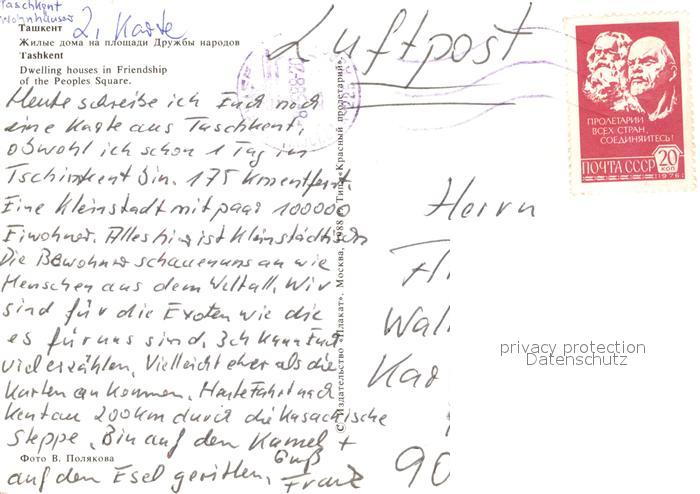 Taschkent
Wohnhäuser
2. Karte
Ташкент
Жилые дома на площади Дружбы народов
Tashkent
Dwelling houses in Friendship
of the Peoples Square.
Luftpost
Heute schreibe ich Euch noch
eine Karte aus Taschkent,
obwohl ich schon 1 Tag in
Tschimkent bin. 175 km entfernt.
Eine Kleinstadt mit paar 100000
Eiwohner. Alles hier ist Kleinstädtisch
Die Bewohner schauen uns an wie
Menschen aus dem Weltall. Wir
sind für die Exoten wie die
es für uns sind. Ich kann Euch
viel erzählen. Vielleicht eher als die
Karten ankommen. Heute Fahrt nach
Kentau 200 km durch die Kasachische
Steppe. Bin auf den Kamel +
auf den Esel geritten. Gruß
Franz
Фото В. Полякова
© Издательство «Плакат». Москва, 1988 г. Тип. «Красный пролетарий».
ПРОЛЕТАРИИ
ВСЕХ СТРАН,
СОЕДИНЯЙТЕСЬ!
ПОЧТА СССР
20
КОП
1976
Herrn
Wal
90
privacy protection
Datenschutz